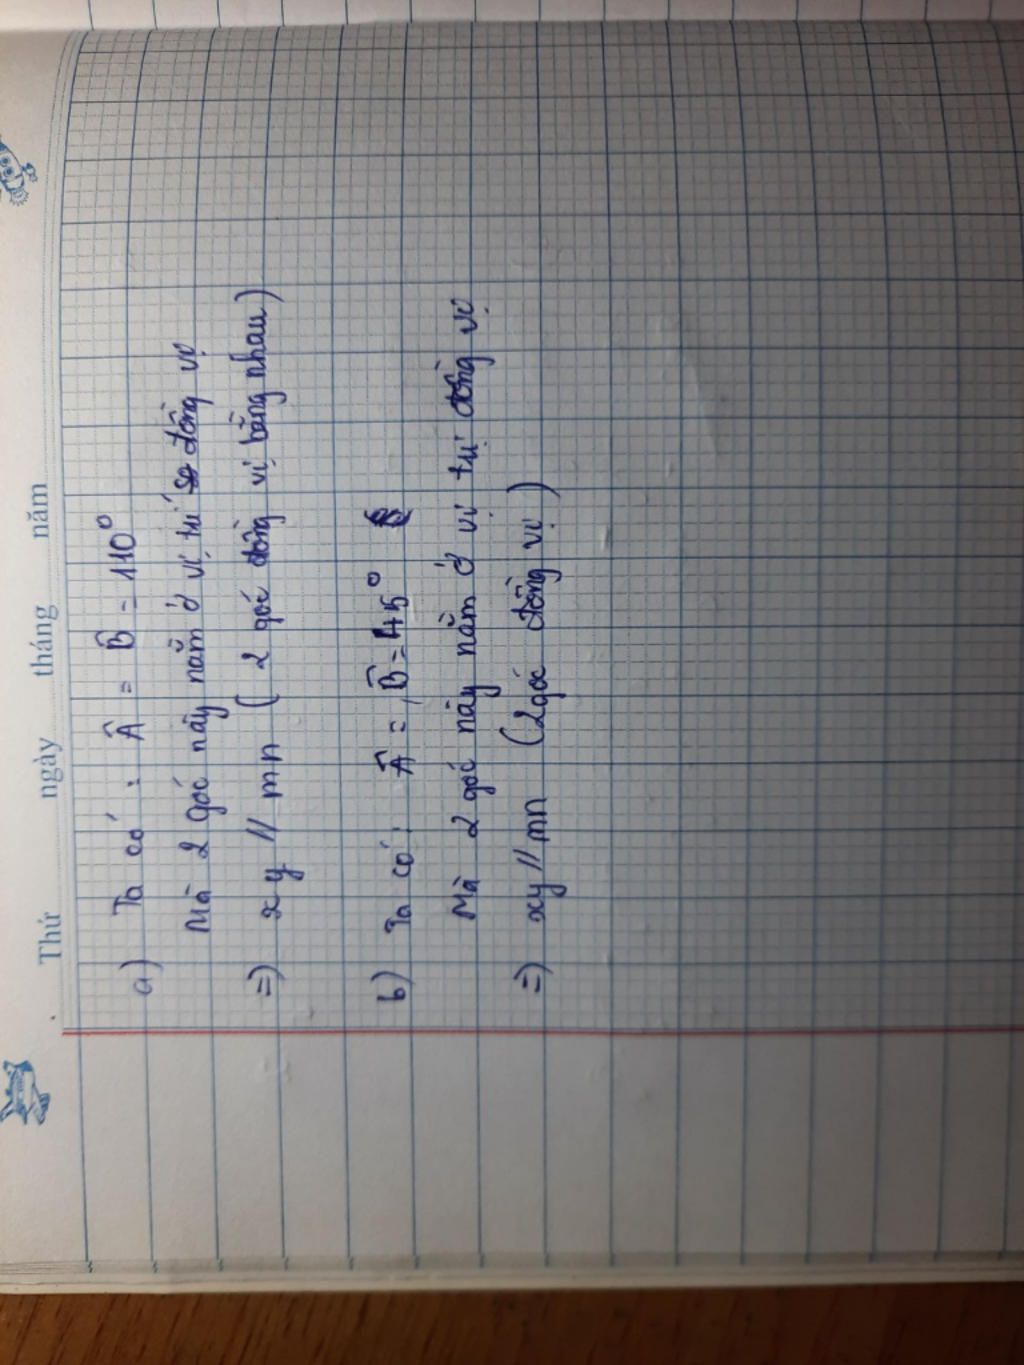 Thứ ngày tháng năm
a) Ta có : Â = B̂ = 110°
Mà 2 góc này nằm ở vị trí đồng vị
=) xy // mn ( 2 góc đồng vị bằng nhau)
b) Ta có : Â = B̂ = 45°
Mà 2 góc này nằm ở vị trị đồng vị
=) xy // mn (2 góc đồng vị )